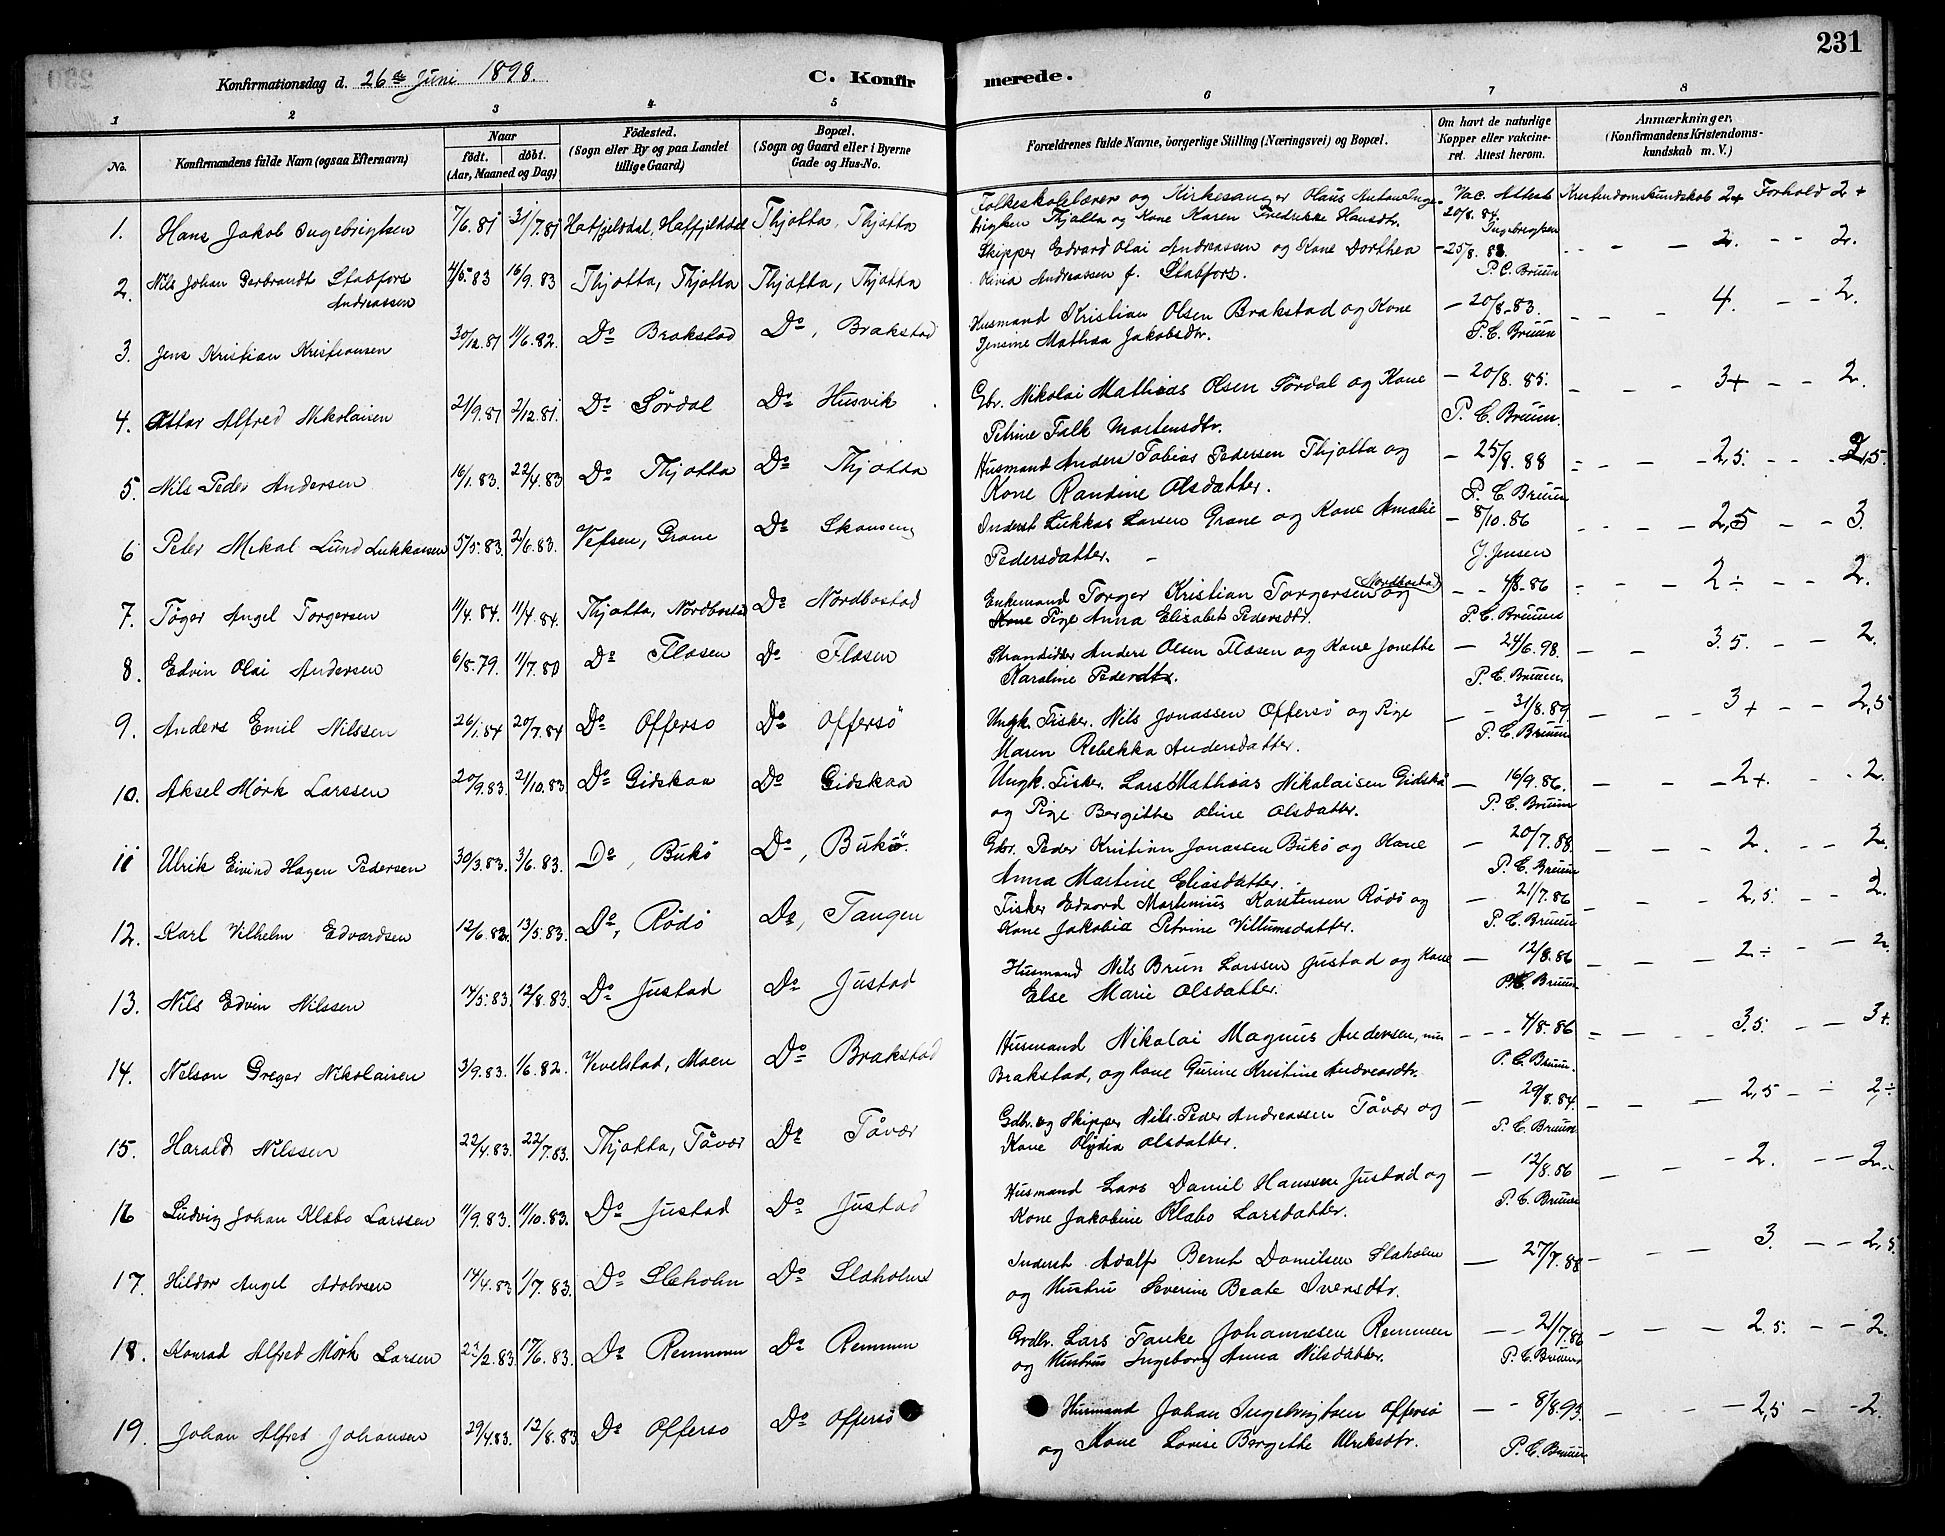 231
Konfirmationsdag d. 26de Juni 1898.
C. Konfirmerede.
1 2 3 4 5 6 7 8
No. Konfirmandens fulde Navn (ogsaa Efternavn) Naar født. døbt. (Aar, Maaned og Dag) Fødested. (Sogn eller By og paa Landet tillige Gaard) Bopæl. (Sogn og Gaard eller i Byerne Gade og Hus-No.) Forældrenes fulde Navne, borgerlige Stilling (Næringsvei) og Bopæl. Om havt de naturlige Kopper eller vakcineret. Attest herom. Anmærkninger. (Konfirmandens Kristendomskundskab m. V.)
1. Hans Jakob Ingebrigtsen 7/6.81 31/7.81 Hatfjeldsdal, Hatfjelddal Thjøtta, Thjøtta Folkeskolelærer og Kirkesanger Olaus Anton Ingebrigtsen Thjøtta og Kone Karen Fredrikke Hansdtr. Vac. Attest 20/8.84. Ingebrigtsen Kristendomskundskab 2+ Forhold 2+
2. Nils Johan Gerbrandt Stabfors Andreassen 4/5.83 16/9.83 Thjøtta, Thjøtta Thjøtta, Thjøtta Skipper Edvard Olai Andreassen og Kone Dorthea Livia Andreassen f. Stabfors. - 25/8.83. P.C. Bruun - - - 2. - - 2.
3. Jens Kristian Kristiansen 30/12.81 11/6.82. Do Brakstad Do, Brakstad Husmand Kristian Olsen Brakstad og Kone Jensine Mathea Jakobsdtr. - 20/8.83. P.C. Bruun - - - 4. - - 2.
4. Ottar Alfred Nikolaisen 21/9.81 2/12.81. Do Sørdal Do Husvik Gbr. Nikolai Mathias Olsen Sørdal og Kone Petrine Falk Mortensdtr. - 20/8.85. P.C. Bruun. - - - 3+ - - 2.
5. Nils Peder Andersen 16/1.83. 22/4.83 Do Thjøtta Do Thjøtta Husmand Anders Tobias Pedersen Thjøtta og Kone Randine Olsdatter. - 25/8.88 P.C. Bruun - - - 2,5. - - 2,5.
6 Peder Mikal Lund Lukkassen 5/5.83. 2/6.83. Vefsen, Grane Do Skonseng Inderst Lukkas Larsen Grane og Kone Amalie Pedersdatter. - 8/10.86 J. Jensen - - - 2,5 - - 3.
7. Tøger Angel Torgersen 11/4.84. 11/4.84. Thjøtta, Nordbostad Do Nordbostad Enkemand Torger Kristian Torgersen Nordbostad og Pige Anna Elisabet Pedersdtr. - - 4/8.86 P.C. Bruun - - - 2÷ - - 2.
8. Edvin Olai Andersen 6/8.79. 11/7.80 Do Flæsen Do Flæsen Strandsidder Anders Olsen Flæsen og Kone Jonette Karoline Pedersdtr. - 24/6.98. P.C. Bruun - - 3.5. - - 2.
9. Anders Emil Nilssen 26/1.84 20/7.84 Do Offersø Do Offersø Ungk. Fisker. Nils Jonassen Offersø og Pige Maren Rebekka Andersdatter. - - 31/8.89. P.C. Bruun - - - 3+ - - 2,5
10. Aksel Mørk Larssen 20/9.83. 21/10.83 Do Gidskaa Do Gidskaa Ungk. Fisker. Lars Mathias Nikolaisen Gidskå og Pige Bergitte Oline Olsdatter. - 16/9.86. P.C. Bruun - - - 2+ - - 2.
11 Ulrik Eivind Hagen Pedersen 30/3.83. 3/6.83. Do, Bukø Do, Bukø. Gbr. Peder Kristian Jonassen Bukø og Kone Anna Martine Eliasdatter. - 20/7.88. P.C. Bruun - - - 2. - - 2.
12. Karl Vilhelm Edvardsen 12/6.82. 13/5.83. Do, Rødø Do, Tangen Fisker Edvard Martinius Karstensen Rødø og Kone Jakobia Petrine Villumsdatter. - 21/7.86 P.C. Bruun - - - 2,5. - - 2.
13. Nils Edvin Nilssen 17/5.83. 12/8.83. Do Justad Do Justad Husmand Nils Brun Larssen Justad og Kone Else Marie Olsdatter. - 12/8.86 P.C. Bruun - - - 2÷ - - 2.
14. Nelson Greger Nikolaisen 3/9.83. 1/6.82. Vevelstad, Moen Do Brakstad Husmand Nikolai Magnus Andersen, nu Brakstad, og Kone Gurine Kristine Andreasdtr. - - - 4/8.86 P.C. Bruun. - - - 3.5. - - 3+.
15. Harald Nilssen 22/4.83. 22/7.83. Thjøtta, Tåvær Do Tåvær Gdbr. og Skipper Nils Peder Andreassen Tåvær og Kone Olydia Olsdatter. - 29/8.84. P.C. Bruun - - - 2,5 - 2÷
16 Ludvig Johan Klæbo Larssen 11/9.83. 11/10.83. Do Justad Do Justad Husmand Lars Daniel Hanssen Justad og Kone Jakobine Klæbo Larsdatter. - 12/8.86 P.C. Bruun - - - 2. - - 2.
17. Hildor Angel Adolvsen 14/4.83 1/7.83. Do Slæholm Do Slæholm Inderst Adolf Bernt Danielsen Slæholm og Hustru Severine Beate Iversdtr. - 27/7.88 - - - 3. - - 2,5.
18. Konrad Alfred Mørk Larsen 23/2.83. 17/6.83. Do Remmen Do Remmen Grdbr. Lars Tanke Johannesen Remmen og Hustru Ingeborg Anna Nilsdatter. - - 21/7.86 P.C. Bruun - - - 2.5. - - 2.
19. Johan Alfret Johansen 29/4.83. 12/8.83 Do Offersø Do Offersø Husmand Johan Ingebrigtsen Offersø og Kone Lovise Bergitte Ulriksdtr. - - 8/8.93. P.C. Bruun - - - 2,5 - - 2.